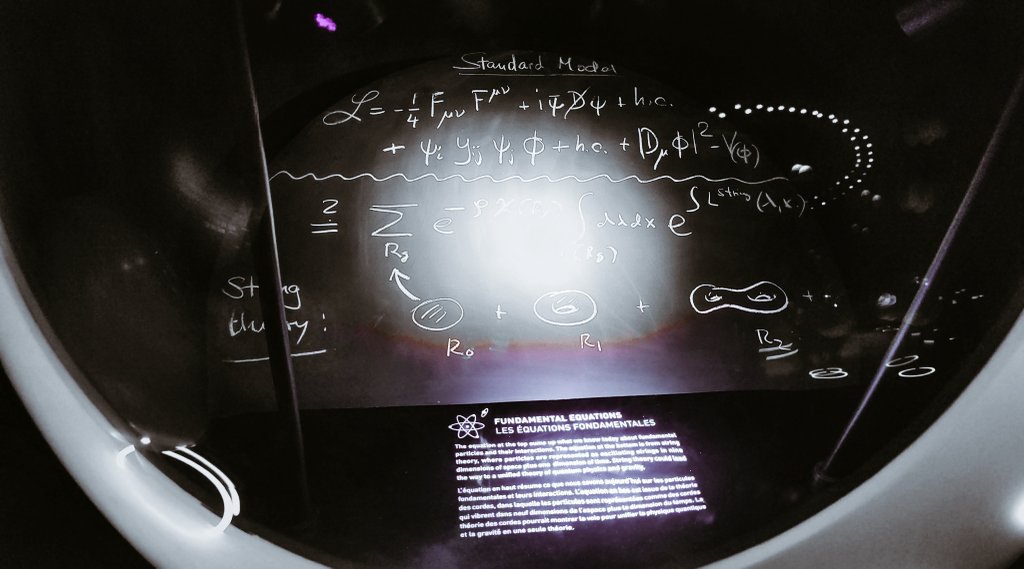 Standard Model
ℒ = -¼ F_μν F^μν + i ψ̄ D̸ ψ + h.c.
+ ψ_i y_ij ψ_j ϕ + h.c. + |D_μ ϕ|² - V(ϕ)
≟ Σ_{R_g} e^{-φ χ(R_g)} ∫_{(R_g)} dλdx e^{∫ L^{string}(λ,x)}
String
theory:
+ + + ...
R₀ R₁ R₂
FUNDAMENTAL EQUATIONS
LES ÉQUATIONS FONDAMENTALES
The equation at the top sums up what we know today about fundamental
particles and their interactions. The equation at the bottom is from string
theory, where particles are represented as oscillating strings in nine
dimensions of space plus one dimension of time. String theory could lead
the way to a unified theory of quantum physics and gravity.
L'équation en haut résume ce que nous savons aujourd'hui sur les particules
fondamentales et leurs interactions. L'équation en bas est issue de la théorie
des cordes, dans laquelle les particules sont représentées comme des cordes
qui vibrent dans neuf dimensions de l'espace plus la dimension du temps. La
théorie des cordes pourrait montrer la voie pour unifier la physique quantique
et la gravité en une seule théorie.